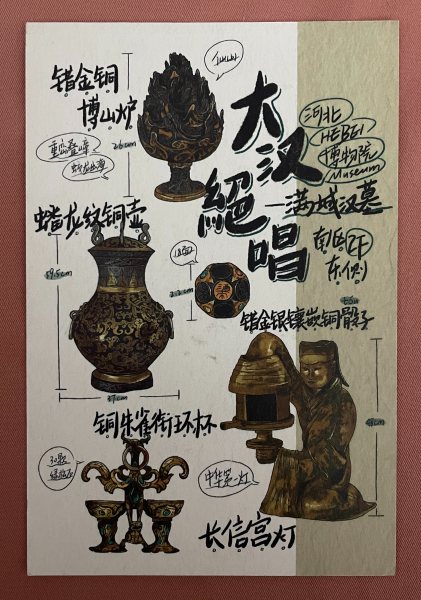 错金铜
博山炉
26cm
大汉
絕唱
—满城汉墓
河北
HEBEI
博物院
Museum
南区 2F
东侧
蟠龙纹铜壶
59.5cm
37cm
18面
2.2cm
错金银镶嵌铜骰子
铜朱雀衔环杯
30颗
绿松石
中华第一灯
48cm
长信宫灯